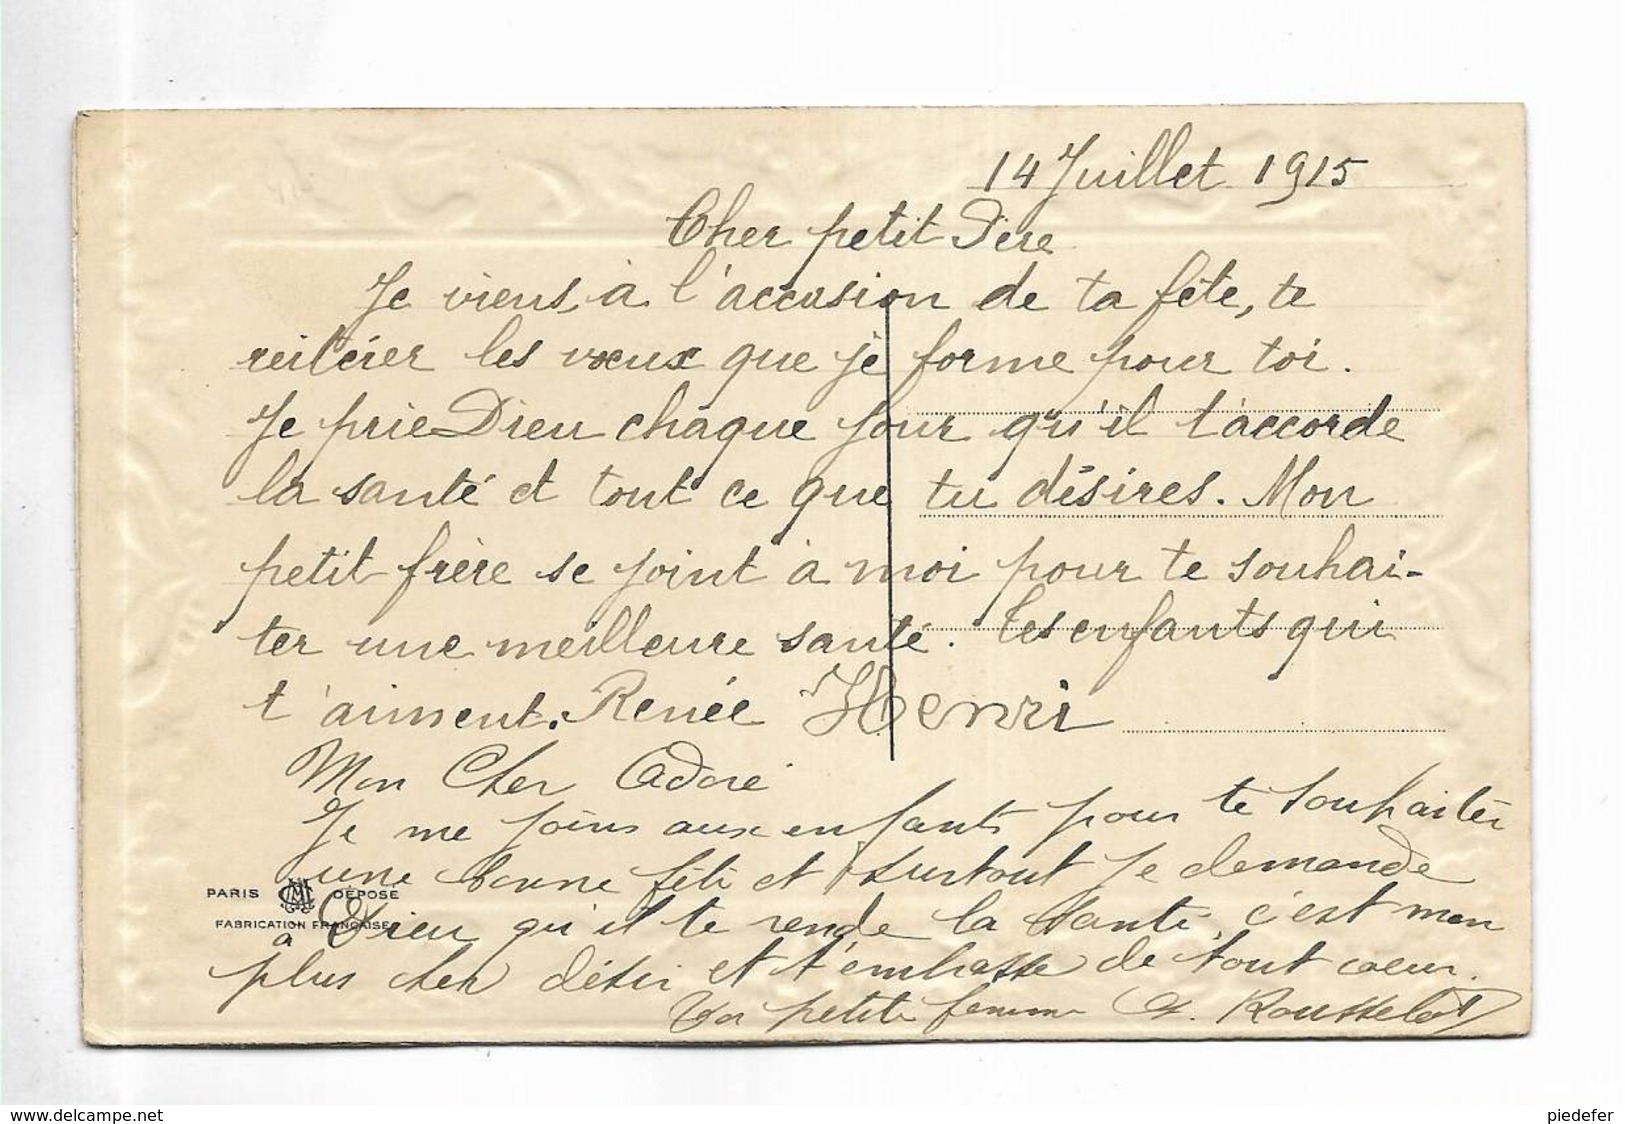 14 Juillet 1915
Cher petit Père
Je viens, à l'accasion de ta fête, te
reitérer les vœux que je forme pour toi.
Je prie Dieu chaque jour qu'il t'accorde
la santé et tout ce que tu désires. Mon
petit frère se joint à moi pour te souhai-
ter une meilleure santé. Tes enfants qui
t'aiment. Renée Henri
Mon Cher Adoré
Je me joins aux enfants pour te souhaiter
une bonne fête et surtout je demande
PARIS CM DÉPOSÉ
à Dieu qu'il te rende la santé, c'est mon
FABRICATION FRANÇAISE
plus cher désir et t'embrasse de tout coeur.
Ta petite femme G. Rousselot
www.delcampe.net
piedefer